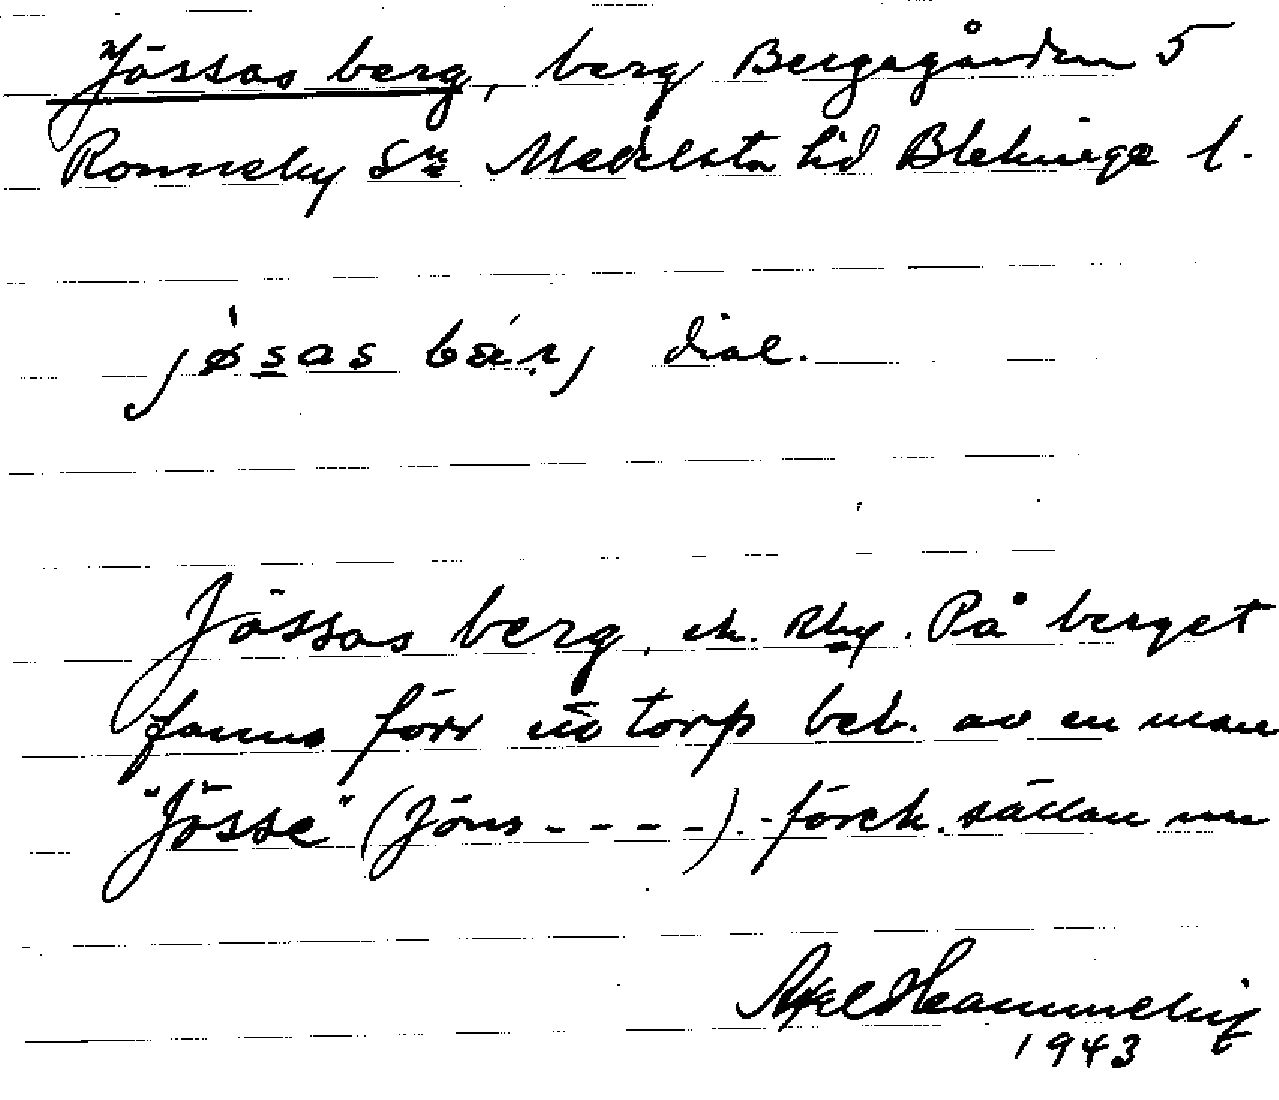 Jössas berg, berg Bergagården 5
Ronneby Sn Medelsta hd Blekinge l.
jøsas bærj dial.
Jössas berg, ek. Rby. På berget
fanns förr ett torp beb. av en man
"Jösse" (Jöns - - - -). - förek. sällan nu
Axel
1943